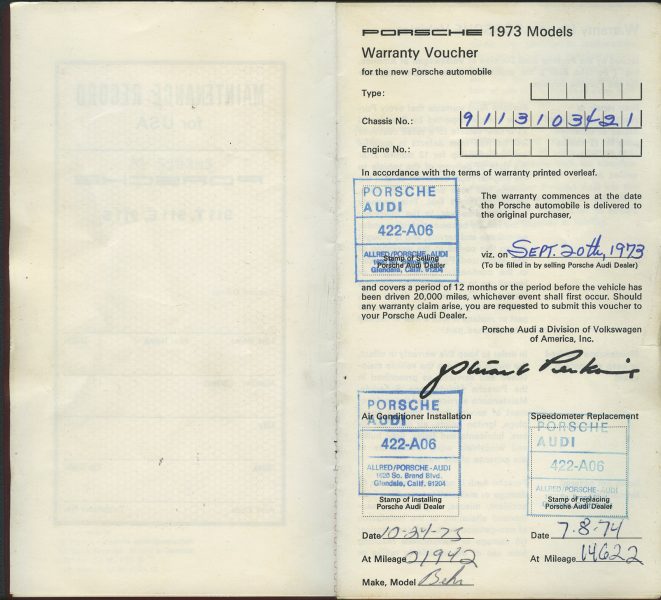 MAINTENANCE RECORD
for USA
PORSCHE
911 T, 911 E, 911 S
PORSCHE 1973 Models
Warranty Voucher
for the new Porsche automobile
Type:
Chassis No.: 9113103421
Engine No.:
In accordance with the terms of warranty printed overleaf.
PORSCHE
AUDI
422-A06
ALLRED/PORSCHE-AUDI
Glendale, Calif. 91204
Stamp of Selling
Porsche Audi Dealer
The warranty commences at the date
the Porsche automobile is delivered to
the original purchaser,
viz. on SEPT. 20th, 1973
(To be filled in by selling Porsche Audi Dealer)
and covers a period of 12 months or the period before the vehicle has
been driven 20,000 miles, whichever event shall first occur. Should
any warranty claim arise, you are requested to submit this voucher to
your Porsche Audi Dealer.
Porsche Audi a Division of Volkswagen
of America, Inc.
Stuart Perkins
Air Conditioner Installation
PORSCHE
AUDI
422-A06
ALLRED/PORSCHE-AUDI
1620 So. Brand Blvd.
Glendale, Calif. 91204
Stamp of installing
Porsche Audi Dealer
Date 10-24-73
At Mileage 01942
Make, Model Behr
Speedometer Replacement
PORSCHE
AUDI
422-A06
ALLRED/PORSCHE-AUDI
Stamp of replacing
Porsche Audi Dealer
Date 7.8.74
At Mileage 14622